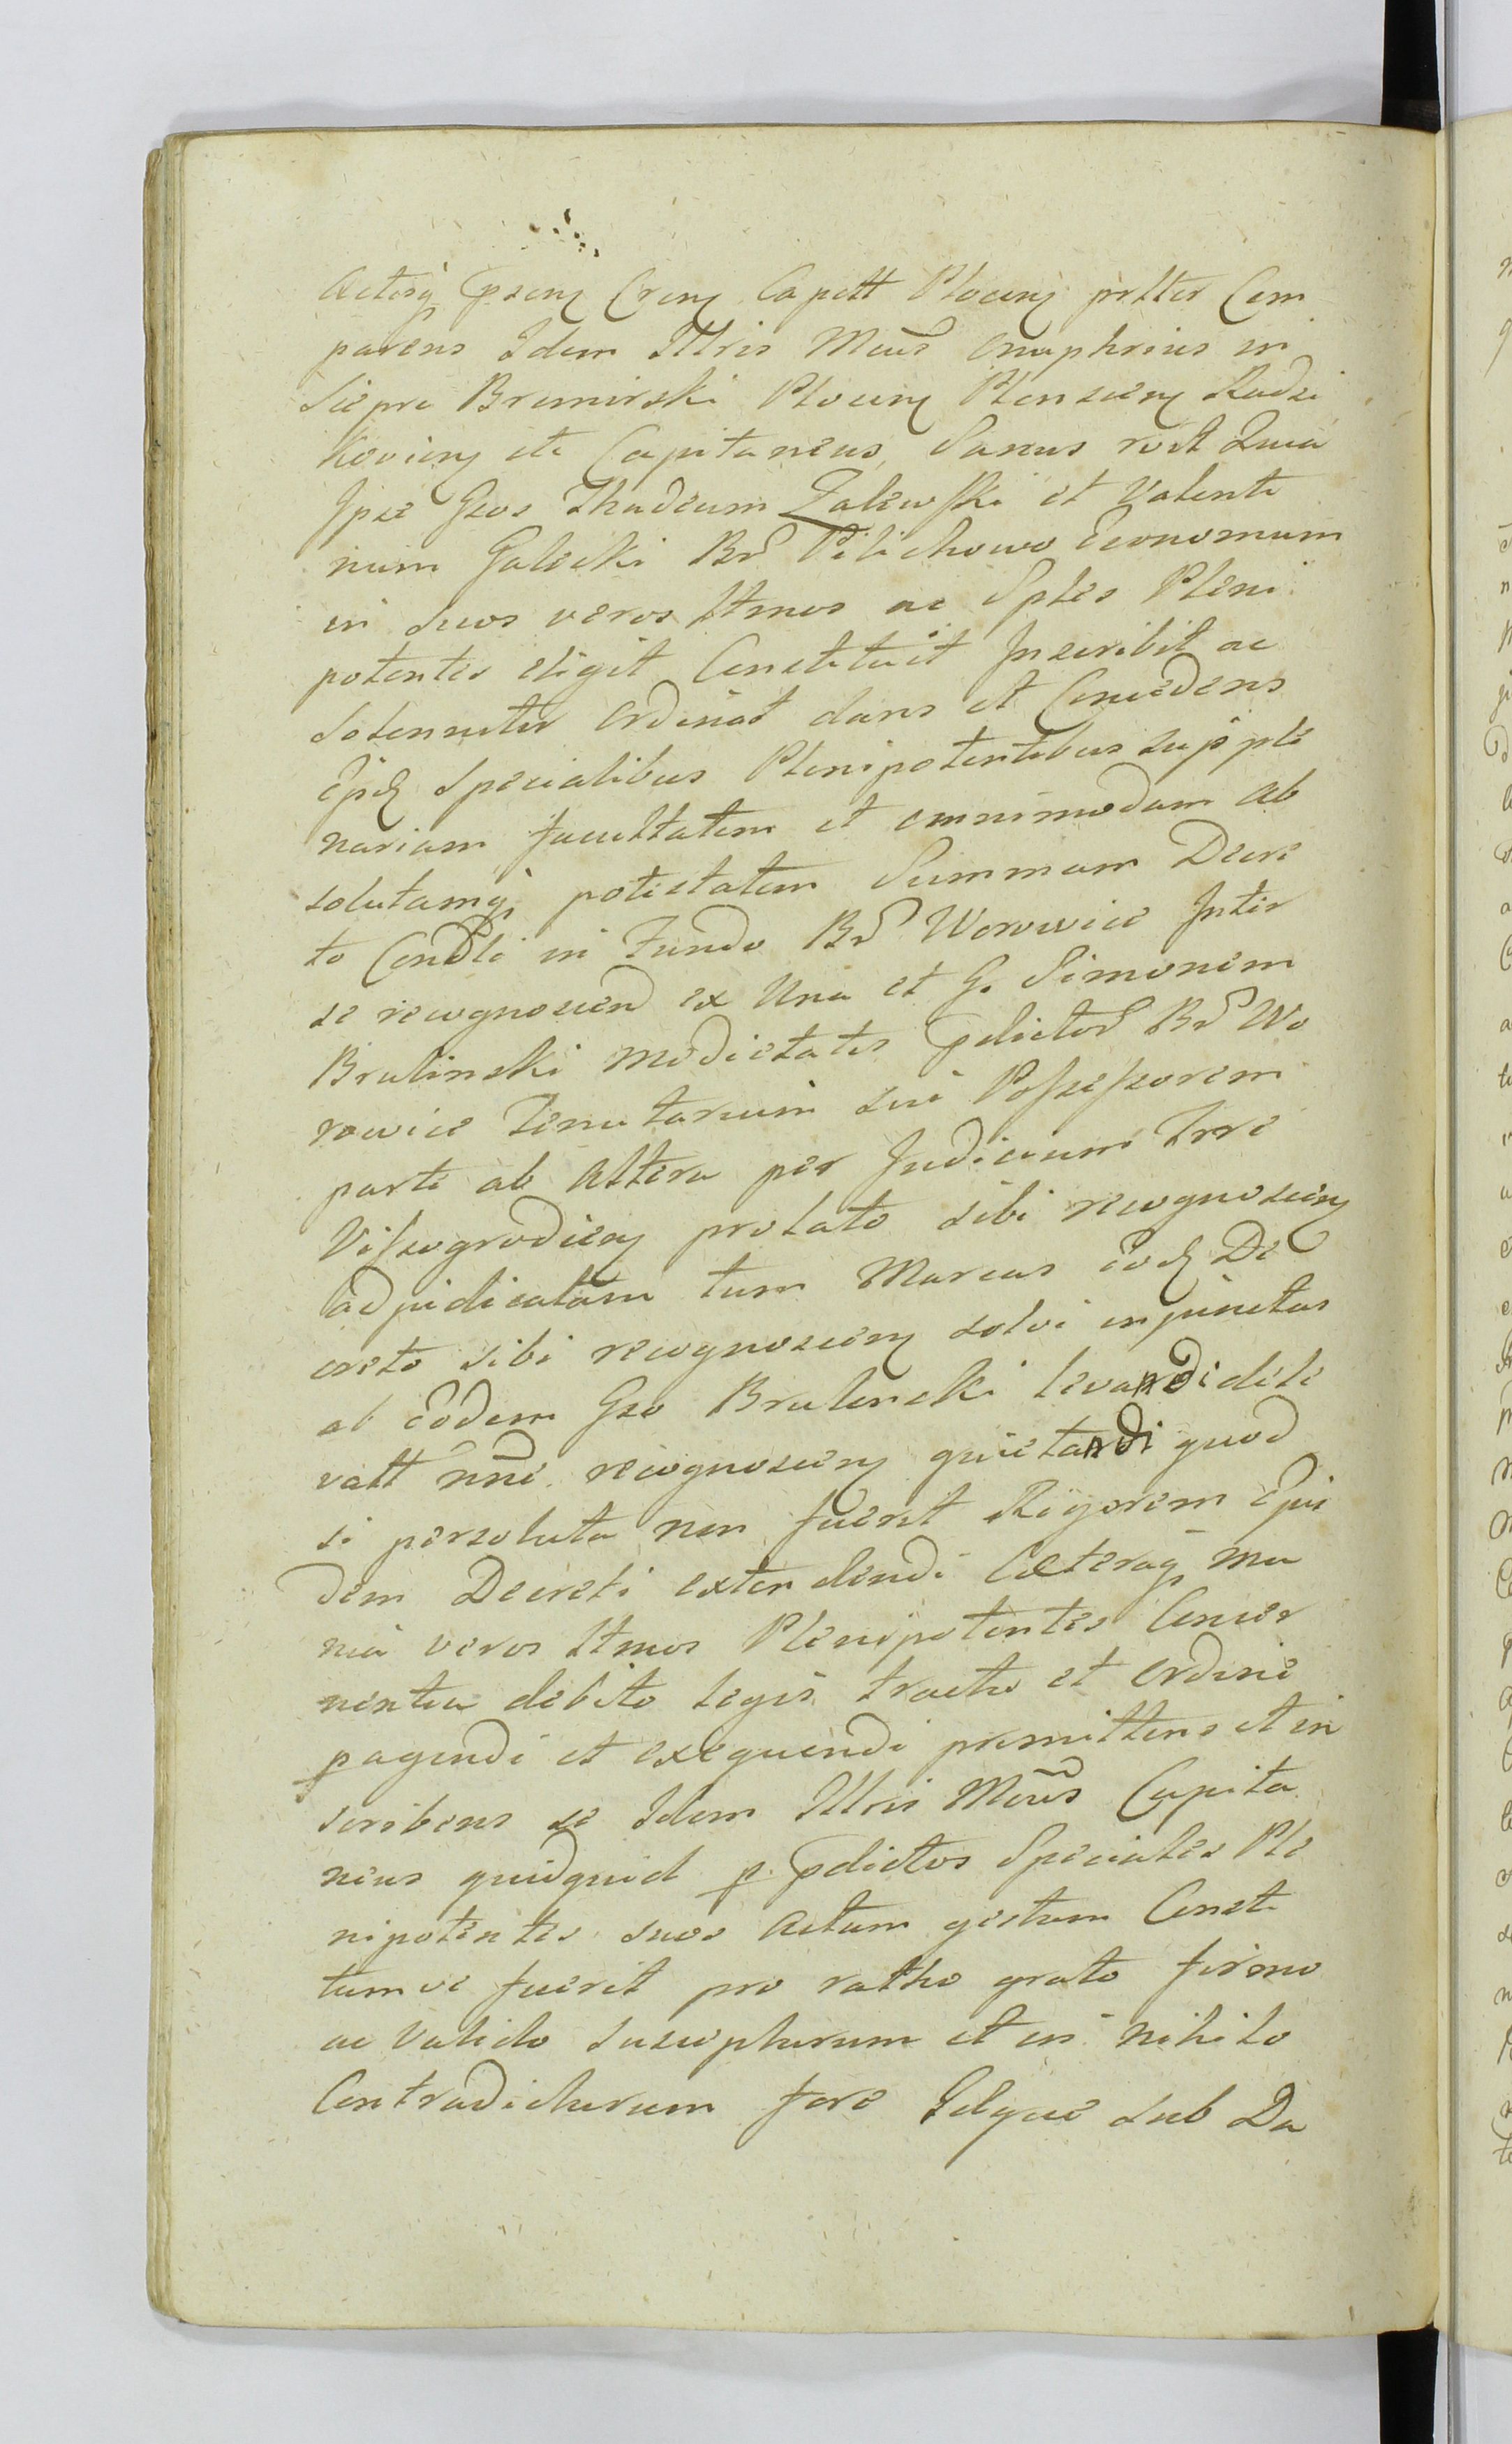 Actisq̃ pn̄seny Creny Capett Plocen̄ prltter Com
parens Idem Illris Mcus Onuphrius in
Siepre Bromirski Plocen̄ Plonscen̄ Radzi
Kovien̄ ett Capitaneus, Sanus rvdt Quia
Ipse Gsos Thadeum Zalewski et Valenti
num Galecki Br̄ Pilichowo Economum
in suos veros Lttmos ac Sples Pleni
potentes eligit Constituit Inscribit ac
Solenniter Ordinat dans et Concedens
Ejsd Specialibus Plenipotentibus suis ple
nariam facultatem et omnimodam ab
solutamq̃ potestatem Summam Decre
to Condli in Fundo Br̄ Worowice Inter
se recognoscen̄ ex Una et G. Simonem
Brulinski Medietatis pdictor̄ Br̄ Wo
rowice Tenutarium sui Possessorem
parte ab Altera per Judicium Trre
Vissogrodien̄ prolato sibi recognoscen̄
adjudicatam tum Marcas eod̄ De
creto sibi recognoscen̄ solvi injunctas
ab eodem Gso Brulinski levandi dele
vatt nn̄e recognoscen̄ quietandi quod
si persoluta non fuerit Rigorem Ejus
dem Decreti extendendi Caeteraq̃ mu
nia veros Lttmos Plenipotentes Concer
nentia debito legis tractu et ordine
pagendi et exequendi promittens et in
scribens se Idem Illris Mcus Capita
neus quidquid p. pdictos Speciales Ple
nipotentes suos Actum gestum Consti
tumve fuerit pro ratho grato firmo
ac Valido suscepturum et in nihilo
Contradicturum fore Idque sub Da